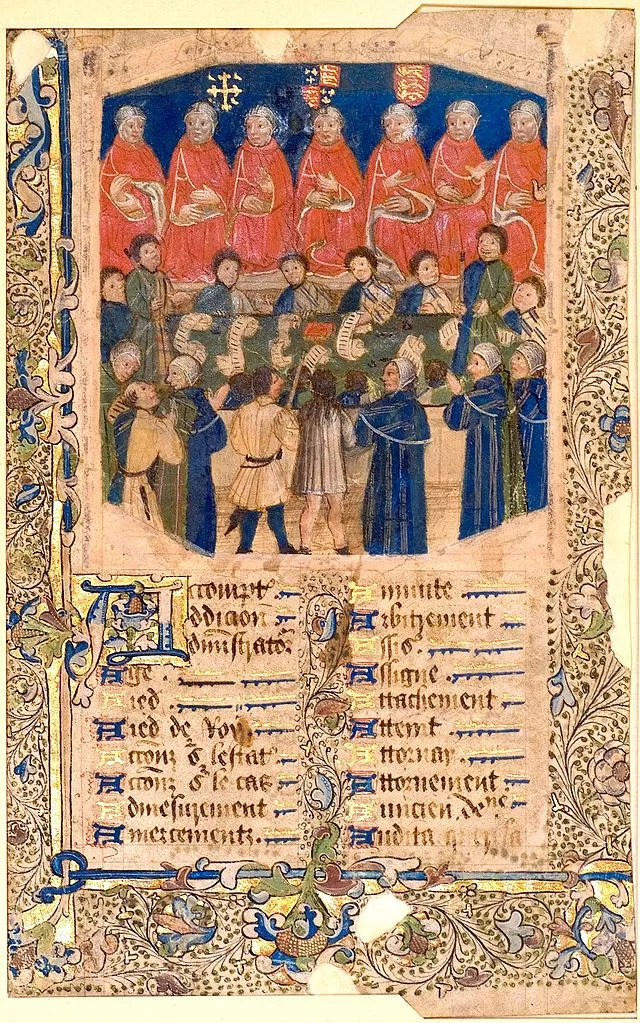 Accompt
Addicion
Administrator
Age
Aied
Aied de Roy
Accionz s' lestat
Accionz s' le cas
Admesurement
Amercementz
Annuite
Arbitrement
Assis'
Assigne
Attachement
Atteint
Attornay
Attornement
Auncien
Audita querela